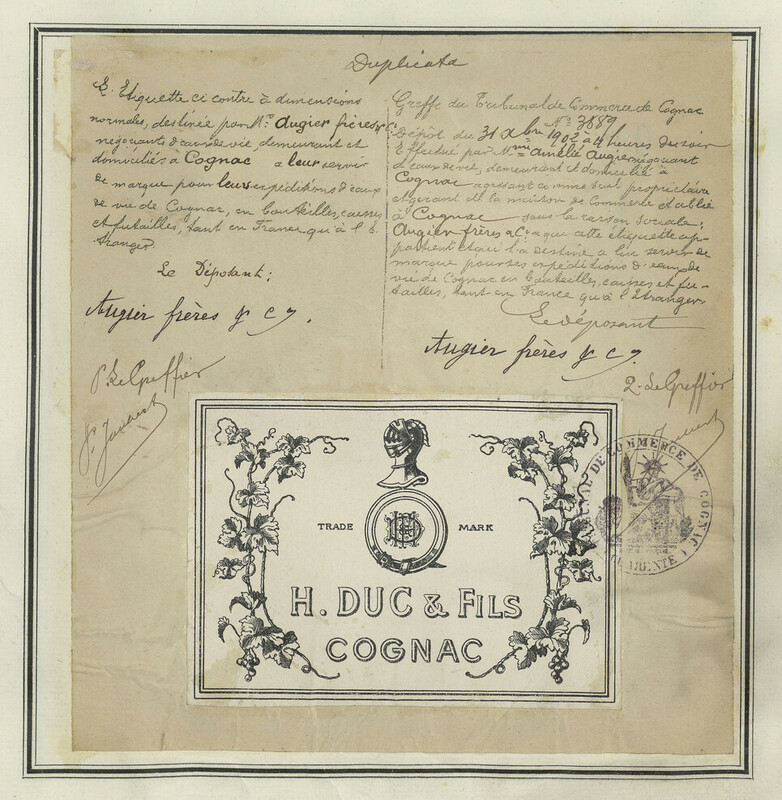 Duplicata
L'Etiquette ci contre à dimensions
normales, destinée par Mrs Augier frères & Cie
négociants d'eaux de vie, demeurant et
domiciliés à Cognac a leur servir
de marque pour leurs expéditions d'eaux
de vie de Cognac, en bouteilles, caisses
et futailles, tant en France qu'à l'E
tranger.
Le Déposant:
Augier frères & Cy.
P. Le Greffier
Greffe du Tribunal de Commerce de Cognac
No 3889
Dépôt du 31 Xbre 1902 à 4 heures du soir
Effectué par Mme Amélie Augier négociant
d'eaux de vie, demeurant et domicilié à
Cognac agissant comme seul propriétaire
et gérant de la maison de Commerce établie
à Cognac sous la raison sociale:
Augier frères & Ce a qui cette étiquette ap-
partient et qui l'a destine a lui servir de
marque pour ses expéditions d'eaux de
vie de Cognac en bouteilles, caisses et fu-
tailles, tant en France qu'à l'Etranger
Le déposant
Augier frères & Cy.
Le Greffier
TRADE MARK
H. DUC & FILS
COGNAC
DE COMMERCE DE COGNAC